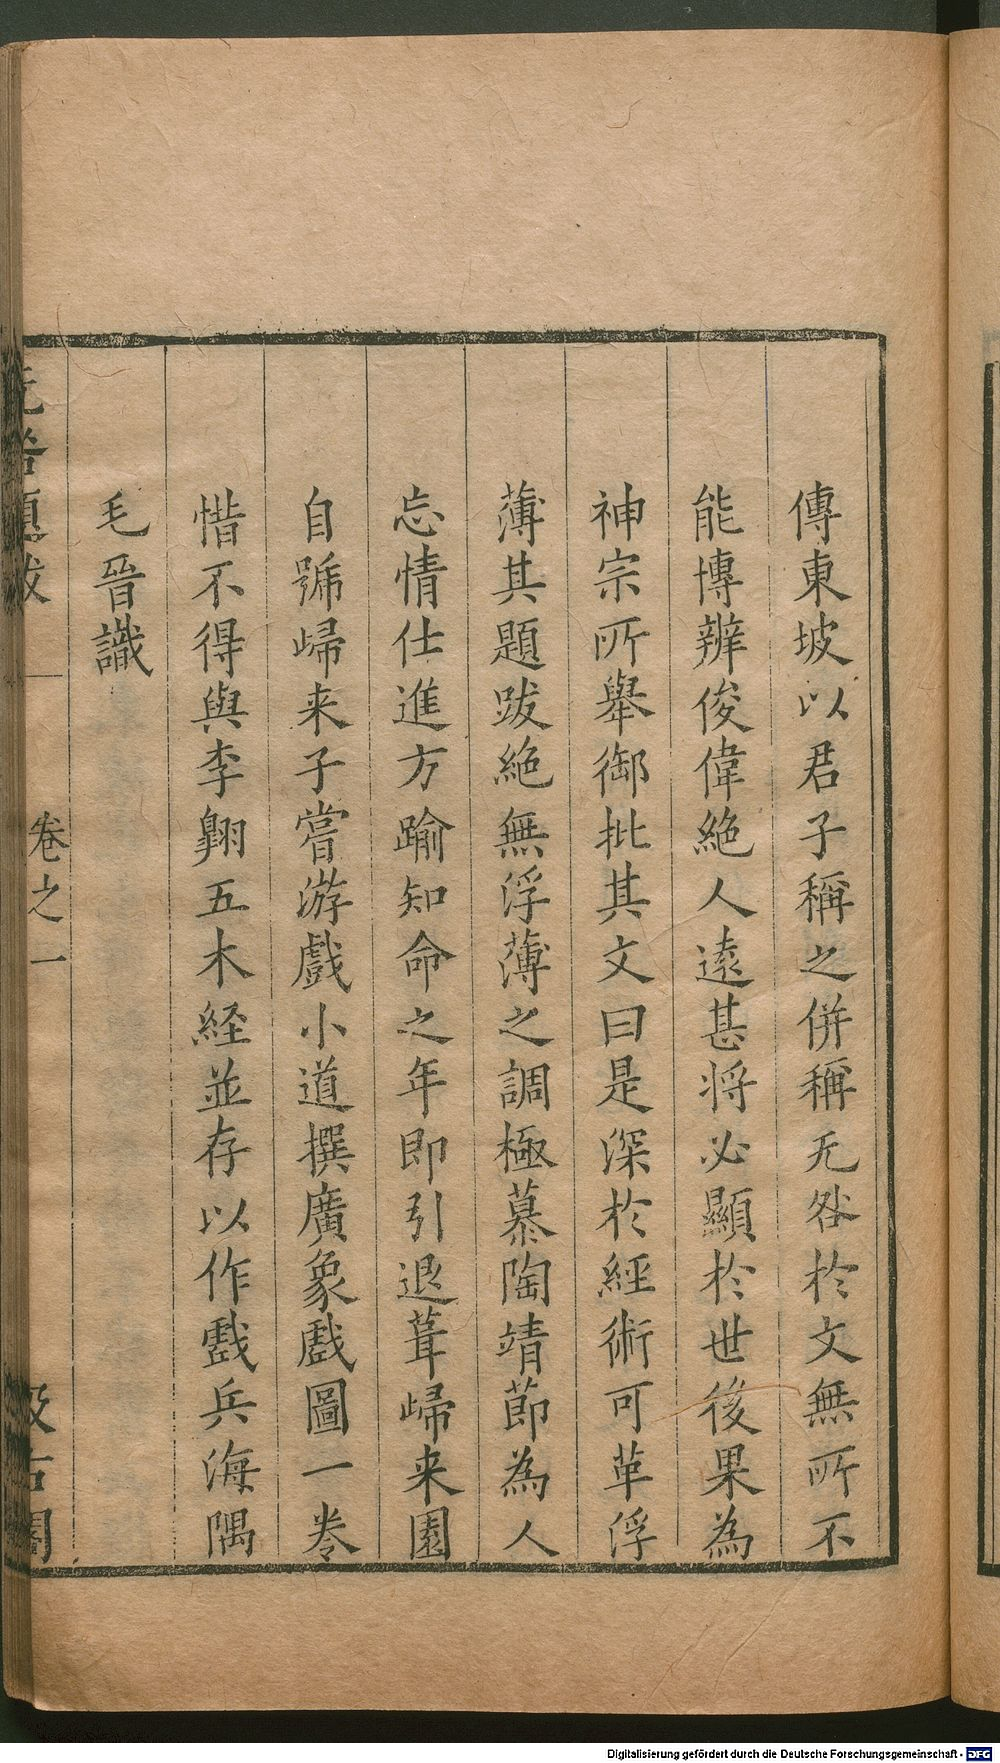 傳東坡以君子稱之併稱无咎於文無所不
能博辨俊偉絶人遠甚將必顯於世後果為
神宗所舉御批其文曰是深於經術可革浮
薄其題跋絶無浮薄之調極慕陶靖節為人
忘情仕進方踰知命之年即引退葺歸来園
自號歸来子嘗游戲小道撰廣象戲圖一卷
惜不得與李翺五木経並存以作戲兵海隅
毛晉識
无咎題跋
卷之一
汲古閣
Digitalisierung gefördert durch die Deutsche Forschungsgemeinschaft - DFG